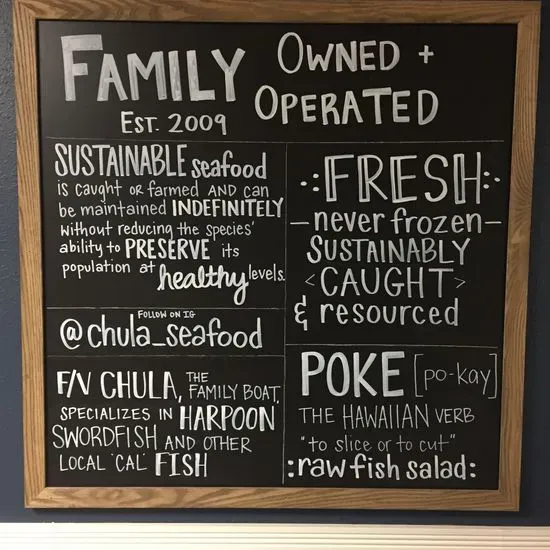 FAMILY OWNED +
OPERATED
EST. 2009
SUSTAINABLE seafood
is caught or farmed AND can
be maintained INDEFINITELY
without reducing the species'
ability to PRESERVE its
population at healthy levels.
FOLLOW ON IG
@chula_seafood
F/V CHULA, THE
FAMILY BOAT,
SPECIALIZES IN HARPOON
SWORDFISH AND OTHER
LOCAL 'CAL' FISH
·:FRESH:·
—never frozen—
SUSTAINABLY
<CAUGHT>
& resourced
POKE [po-kay]
THE HAWAIIAN VERB
"to slice or to cut"
:raw fish salad: